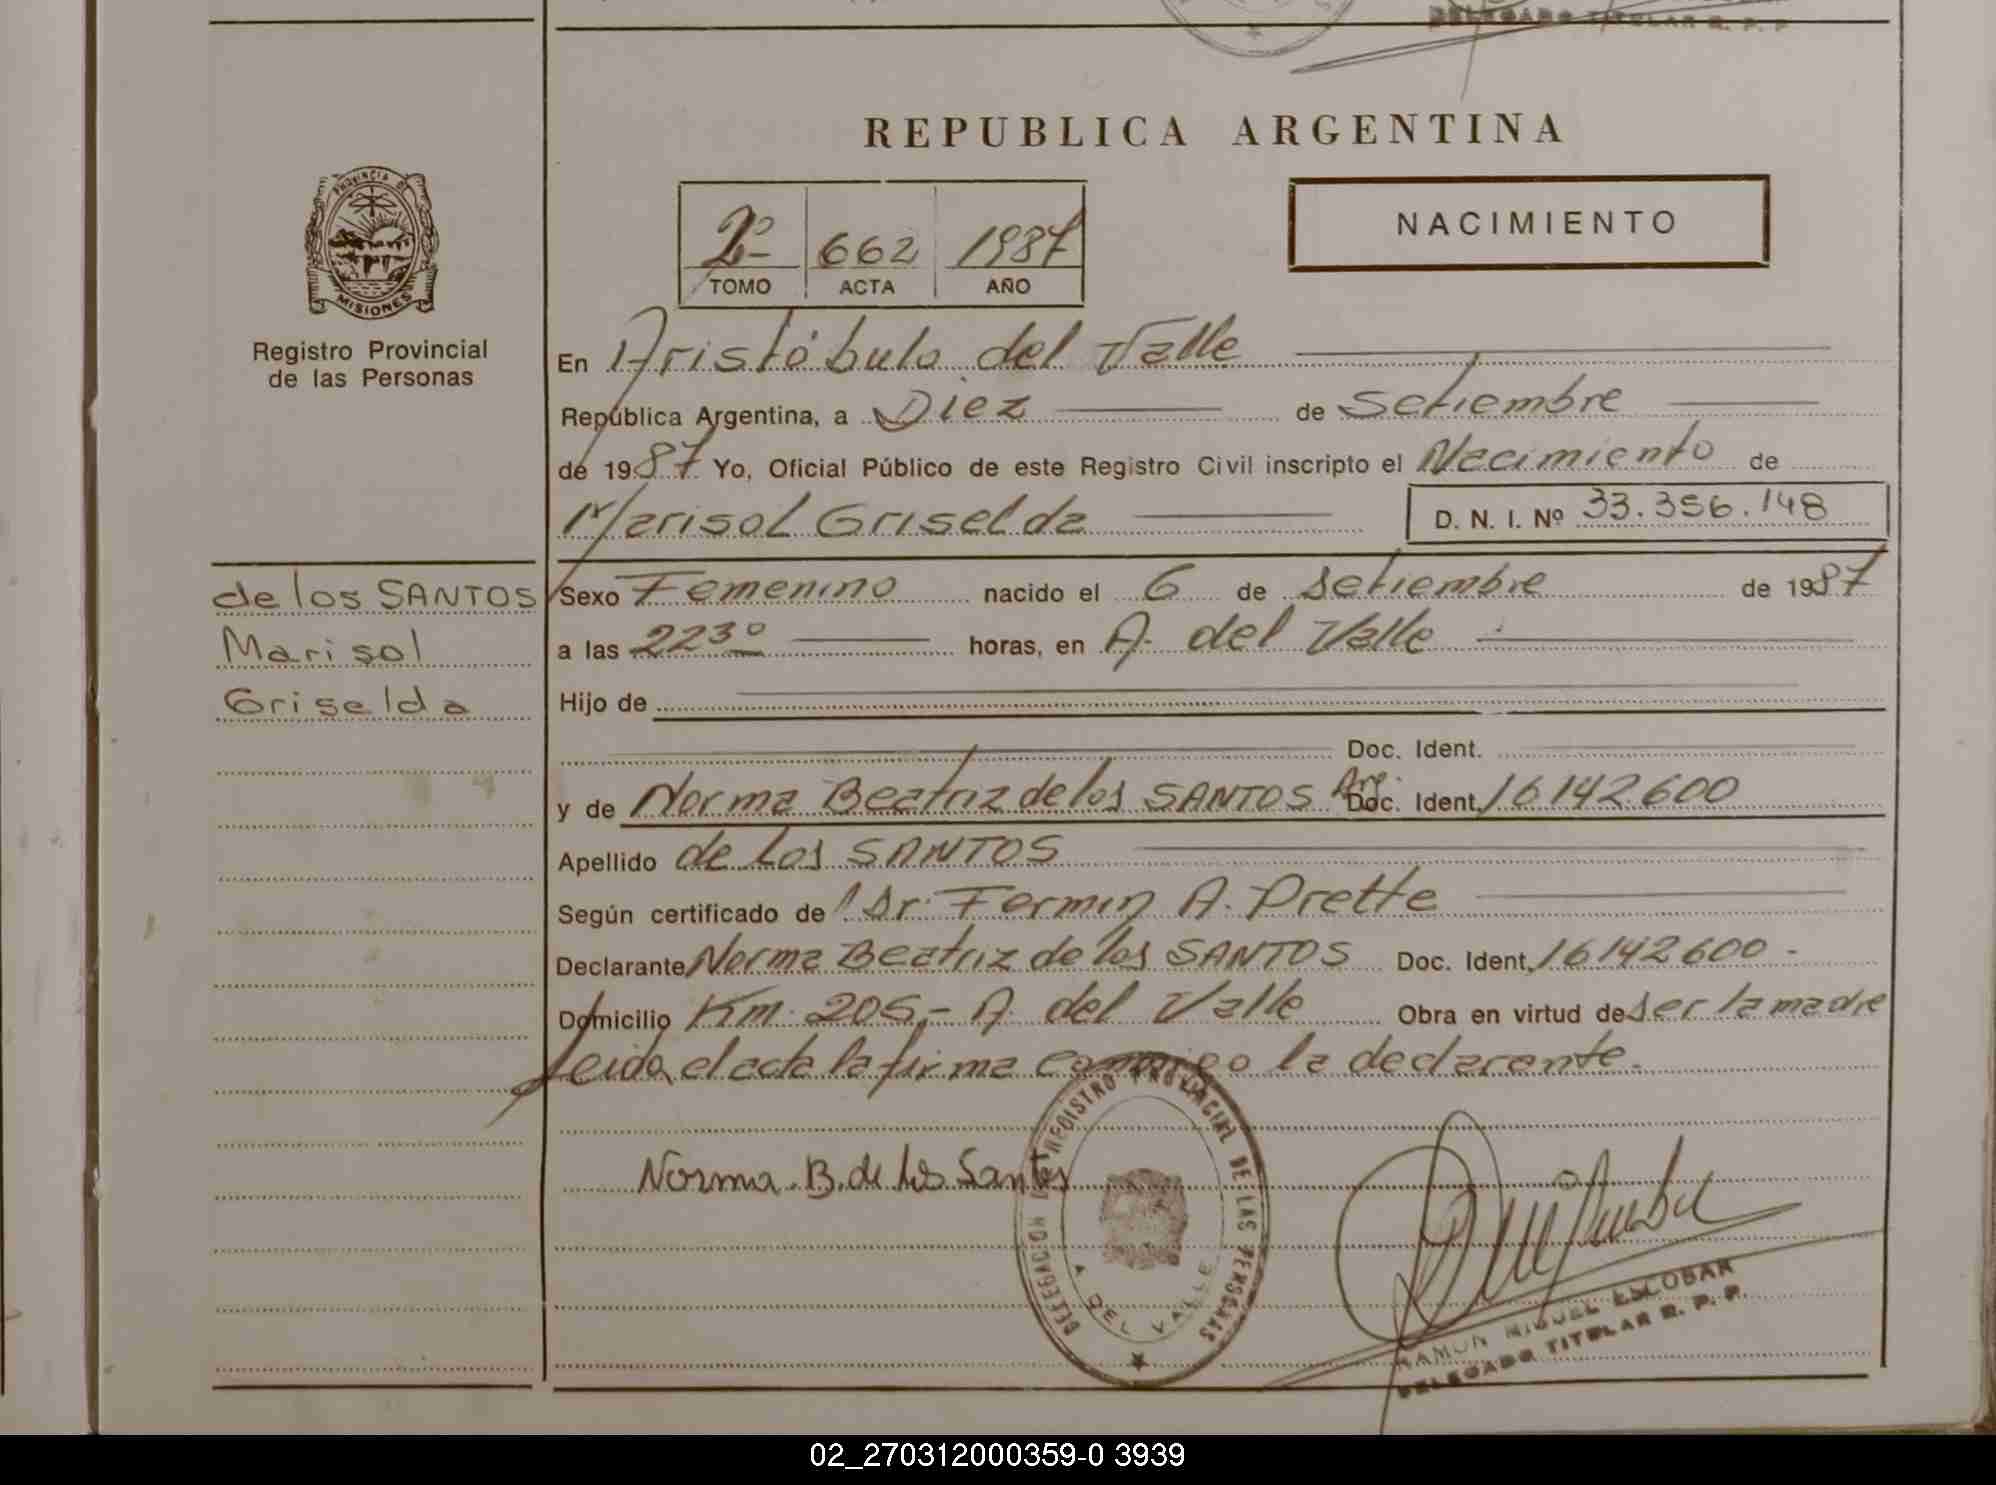 DELEGADO TITULAR R. P. P
REPUBLICA ARGENTINA
PROVINCIA DE
MISIONES
Registro Provincial
de las Personas
2º 662 1987
TOMO ACTA AÑO
NACIMIENTO
En Aristóbulo del Valle
República Argentina, a Diez de Setiembre
de 1987 Yo, Oficial Público de este Registro Civil inscripto el Nacimiento de
Marisol Griselda D. N. I. Nº 33.356.148
de los SANTOS
Marisol
Griselda
Sexo Femenino nacido el 6 de Setiembre de 1987
a las 223º horas, en A. del Valle
Hijo de
Doc. Ident.
y de Norma Beatriz de los SANTOS Arg. Doc. Ident. 16142600
Apellido de los SANTOS
Según certificado de Dr. Fermin A. Prette
Declarante Norma Beatriz de los SANTOS Doc. Ident. 16142600 -
Domicilio Km. 205.- A. del Valle Obra en virtud de ser la madre
leida el acta la firma conmigo la declarante.
Norma. B. de los Santos
DELEGACION DEL REGISTRO PROVINCIAL DE LAS PERSONAS
A. DEL VALLE
RAMON MIGUEL ESCOBAR
DELEGADO TITULAR R. P. P.
02_270312000359-0 3939